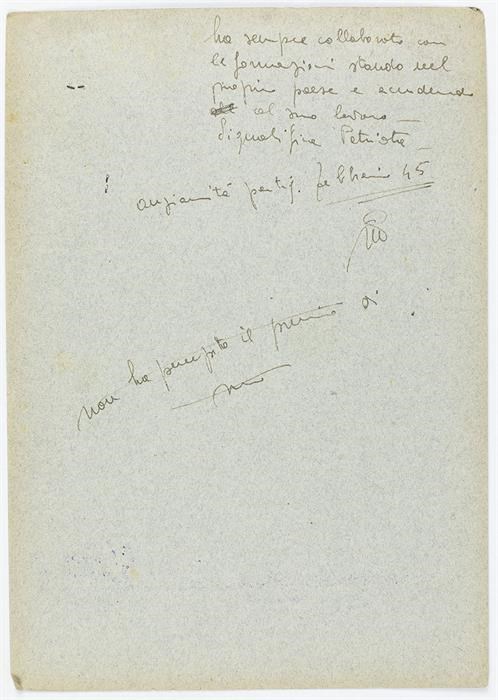 ha sempre collaborato con
le formazioni stando nel
proprio paese e accudendo
al suo lavoro –
Si qualifica Patriota –
anzianità partig. febbraio 45
non ha percepito il premio di